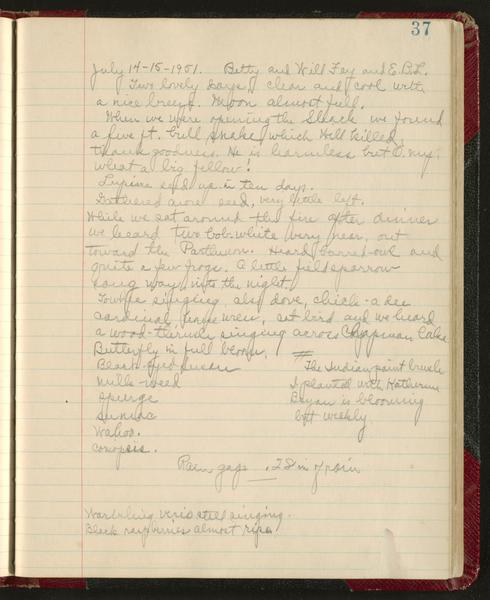 37
July 14-15-1951. Betty and Will Fey and E.B.L.
Two lovely days, clear and cool with
a nice breeze. Moon almost full.
When we were opening the Shack we found
a five ft. bull snake which Will killed,
thank goodness. He is harmless but O. my!
What a big fellow!
Lupine seed up in ten days.
Gathered more seed, very little left.
While we sat around the fire after dinner
we heard two bob-white very near, out
toward the Parthenon. Heard barred-owl and
quite a few frogs. A little field sparrow
sang way into the night.
Towhee singing, also dove, chick-a-dee
cardinal, wren, cat bird and we heard
a wood-thrush singing across Chapman Lake.
Butterfly in full bloom,
Black-eyed susan
Milk-weed
Spurge
Sumac
Wahoo.
Coreopsis.
The Indian paint brush
I planted with Katherine
Bryan is blooming
but weakly.
Rain gage .28 in of rain
Warbling vireo still singing.
Black raspberries almost ripe.